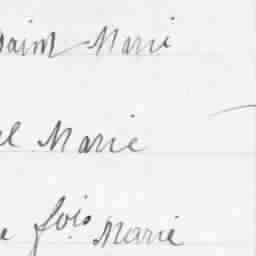 Saint-Marie
el Marie
e fois Marie